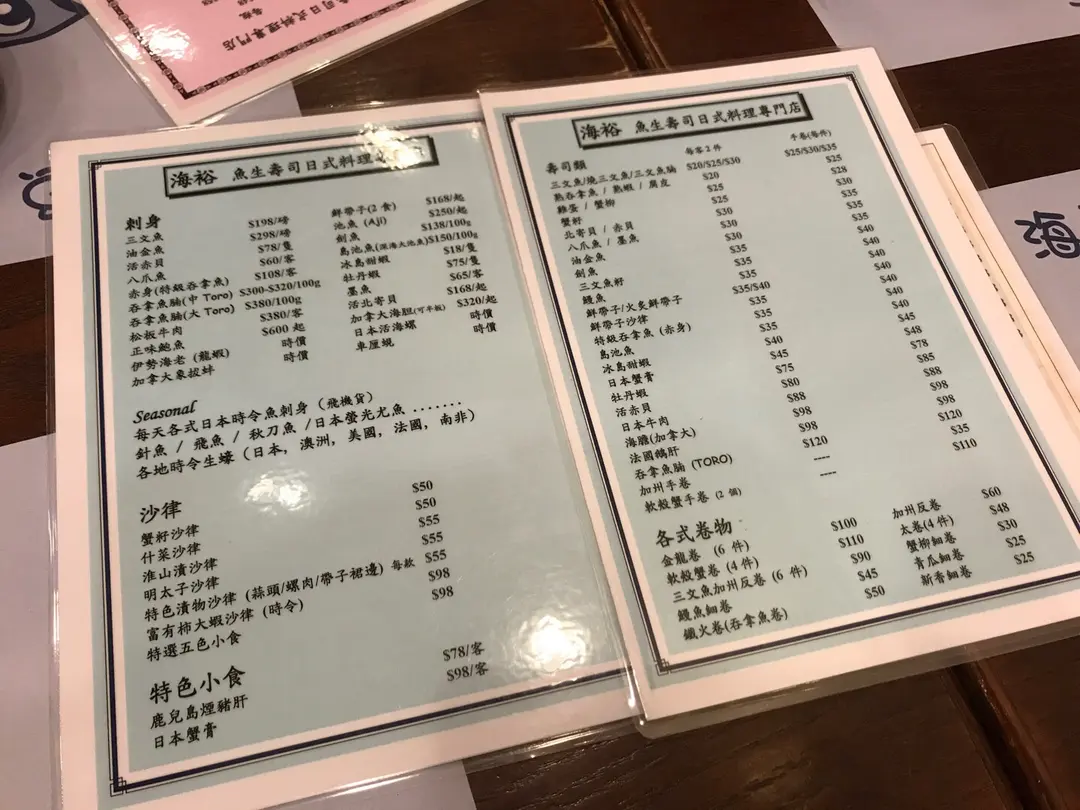 司日式料理專門店
海裕 魚生壽司日式料理
刺身
三文魚 $198/磅
油金魚 $298/磅
活赤貝 $78/隻
八爪魚 $60/客
赤身(特級吞拿魚) $108/客
吞拿魚腩(中 Toro) $300-$320/100g
吞拿魚腩(大 Toro) $380/100g
松板牛肉 $380/客
正味鮑魚 $600 起
伊勢海老 (龍蝦) 時價
加拿大象拔蚌 時價
鮮帶子(2 食) $168/起
池魚 (Aji) $250/起
劍魚 $138/100g
島池魚(深海大池魚) $150/100g
冰島甜蝦 $18/隻
牡丹蝦 $75/隻
墨魚 $65/客
活北寄貝 $168/起
加拿大海胆(可半板) $320/起
日本活海螺 時價
車厘蜆 時價
Seasonal
每天各式日本時令魚刺身 (飛機貨)
針魚 / 飛魚 / 秋刀魚 /日本螢光尤魚 .......
各地時令生蠔 (日本, 澳洲, 美國, 法國, 南非)
沙律
蟹籽沙律 $50
什菜沙律 $50
淮山漬沙律 $55
明太子沙律 $55
特色漬物沙律 (蒜頭/螺肉/帶子裙邊) 每款 $55
富有柿大蝦沙律 (時令) $98
特選五色小食 $98
特色小食
鹿兒島煙豬肝 $78/客
日本蟹膏 $98/客
海裕 魚生壽司日式料理專門店
壽司類 每客2件
三文魚/燒三文魚/三文魚腩 $20/$25/$30
熟吞拿魚 / 熟蝦 / 腐皮 $20
雞蛋 / 蟹柳 $25
蟹籽 $25
北寄貝 / 赤貝 $30
八爪魚 / 墨魚 $30
油金魚 $30
劍魚 $35
三文魚籽 $35
鰻魚 $35
鮮帶子/火炙鮮帶子 $35/$40
鮮帶子沙律 $35
特級吞拿魚 (赤身) $35
島池魚 $35
冰島甜蝦 $40
日本蟹膏 $45
牡丹蝦 $75
活赤貝 $80
日本牛肉 $88
海膽(加拿大) $98
法國鵝肝 $98
吞拿魚腩 (TORO) $120
加州手卷 ----
軟殼蟹手卷 (2 個) ----
手卷(每件)
$25/$30/$35
$25
$28
$30
$35
$35
$40
$40
$40
$40
$40
$40
$45
$48
$78
$85
$88
$98
$98
$120
$35
$110
各式卷物
金龍卷 (6 件) $100
軟殼蟹卷 (4 件) $110
三文魚加州反卷 (6 件) $90
鰻魚細卷 $45
鐵火卷(吞拿魚卷) $50
加州反卷 $60
太卷(4 件) $48
蟹柳細卷 $30
青瓜細卷 $25
新香細卷 $25
海